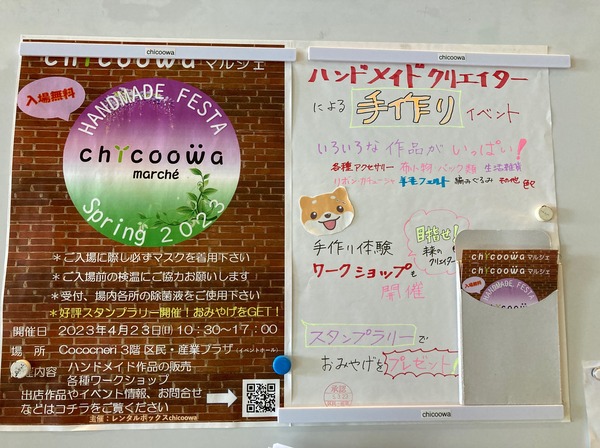 chicoowa
chicoowa マルシェ
入場無料
HANDMADE FESTA
chicoowa
marché
Spring 2023
＊ご入場に際し必ずマスクを着用下さい
＊ご入場前の検温にご協力お願いします
＊受付、場内各所の除菌液をご使用下さい
＊好評スタンプラリー開催！おみやげをGET！
開催日 2023年4月23日(日) 10:30~17:00
場 所 Cococneri 3階 区民・産業プラザ (イベントホール)
内容 ハンドメイド作品の販売
各種ワークショップ
出店作品やイベント情報、お問合せ
などはコチラをご覧ください
主催：レンタルボックスchicoowa
chicoowa
ハンドメイドクリエイター
による 手作り イベント
いろいろな作品がいっぱい!
各種アクセサリー 布小物 バック類 生活雑貨
リボン・カチューシャ 羊毛フェルト 編みぐるみ その他
手作り体験
ワークショップも
開催
目指せ!
未来の
クリエイター
スタンプラリーで
おみやげをプレゼント
chicoowa マルシェ
chicoowa マルシェ
入場無料
HANDMADE FESTA
承認
chicoowa